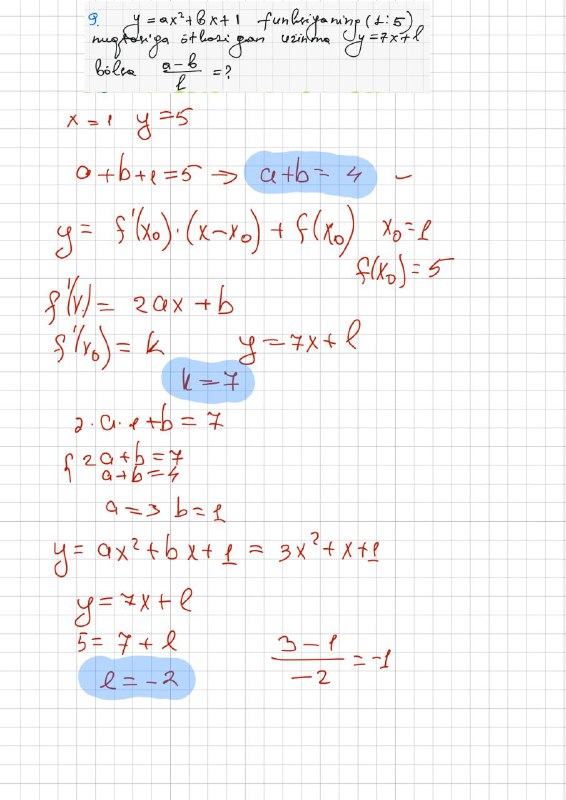 9. y=ax²+bx+1 funksiyaning (1:5)
nuqtasiga o'tkazilgan urinma y=7x+l
bo'lsa (a-b)/l =?
x=1 y=5
a+b+1=5 ⇒ a+b=4 –
y= f'(x₀)·(x-x₀)+f(x₀) x₀=1
f(x₀)=5
f'(x)= 2ax+b
f'(x₀)=k y=7x+l
k=7
2·a·1+b=7
{ 2a+b=7
a+b=4
a=3 b=1
y=ax²+bx+1 = 3x²+x+1
y=7x+l
5=7+l
l=-2
(3-1)/(-2) =-1